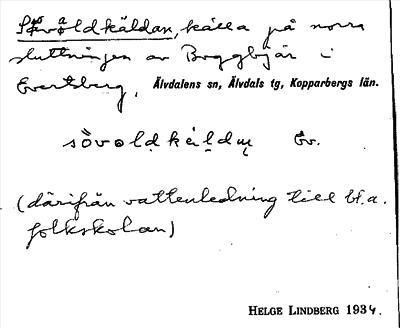 Sövoldkäldan, källa på norra
sluttningen av Byggbjär i
Evertsberg, Älvdalens sn, Älvdals tg, Kopparbergs län.
sövoldkäldn̥ Ev.
(därifrån vattenledning till bl.a.
folkskolan)
HELGE LINDBERG 1934.